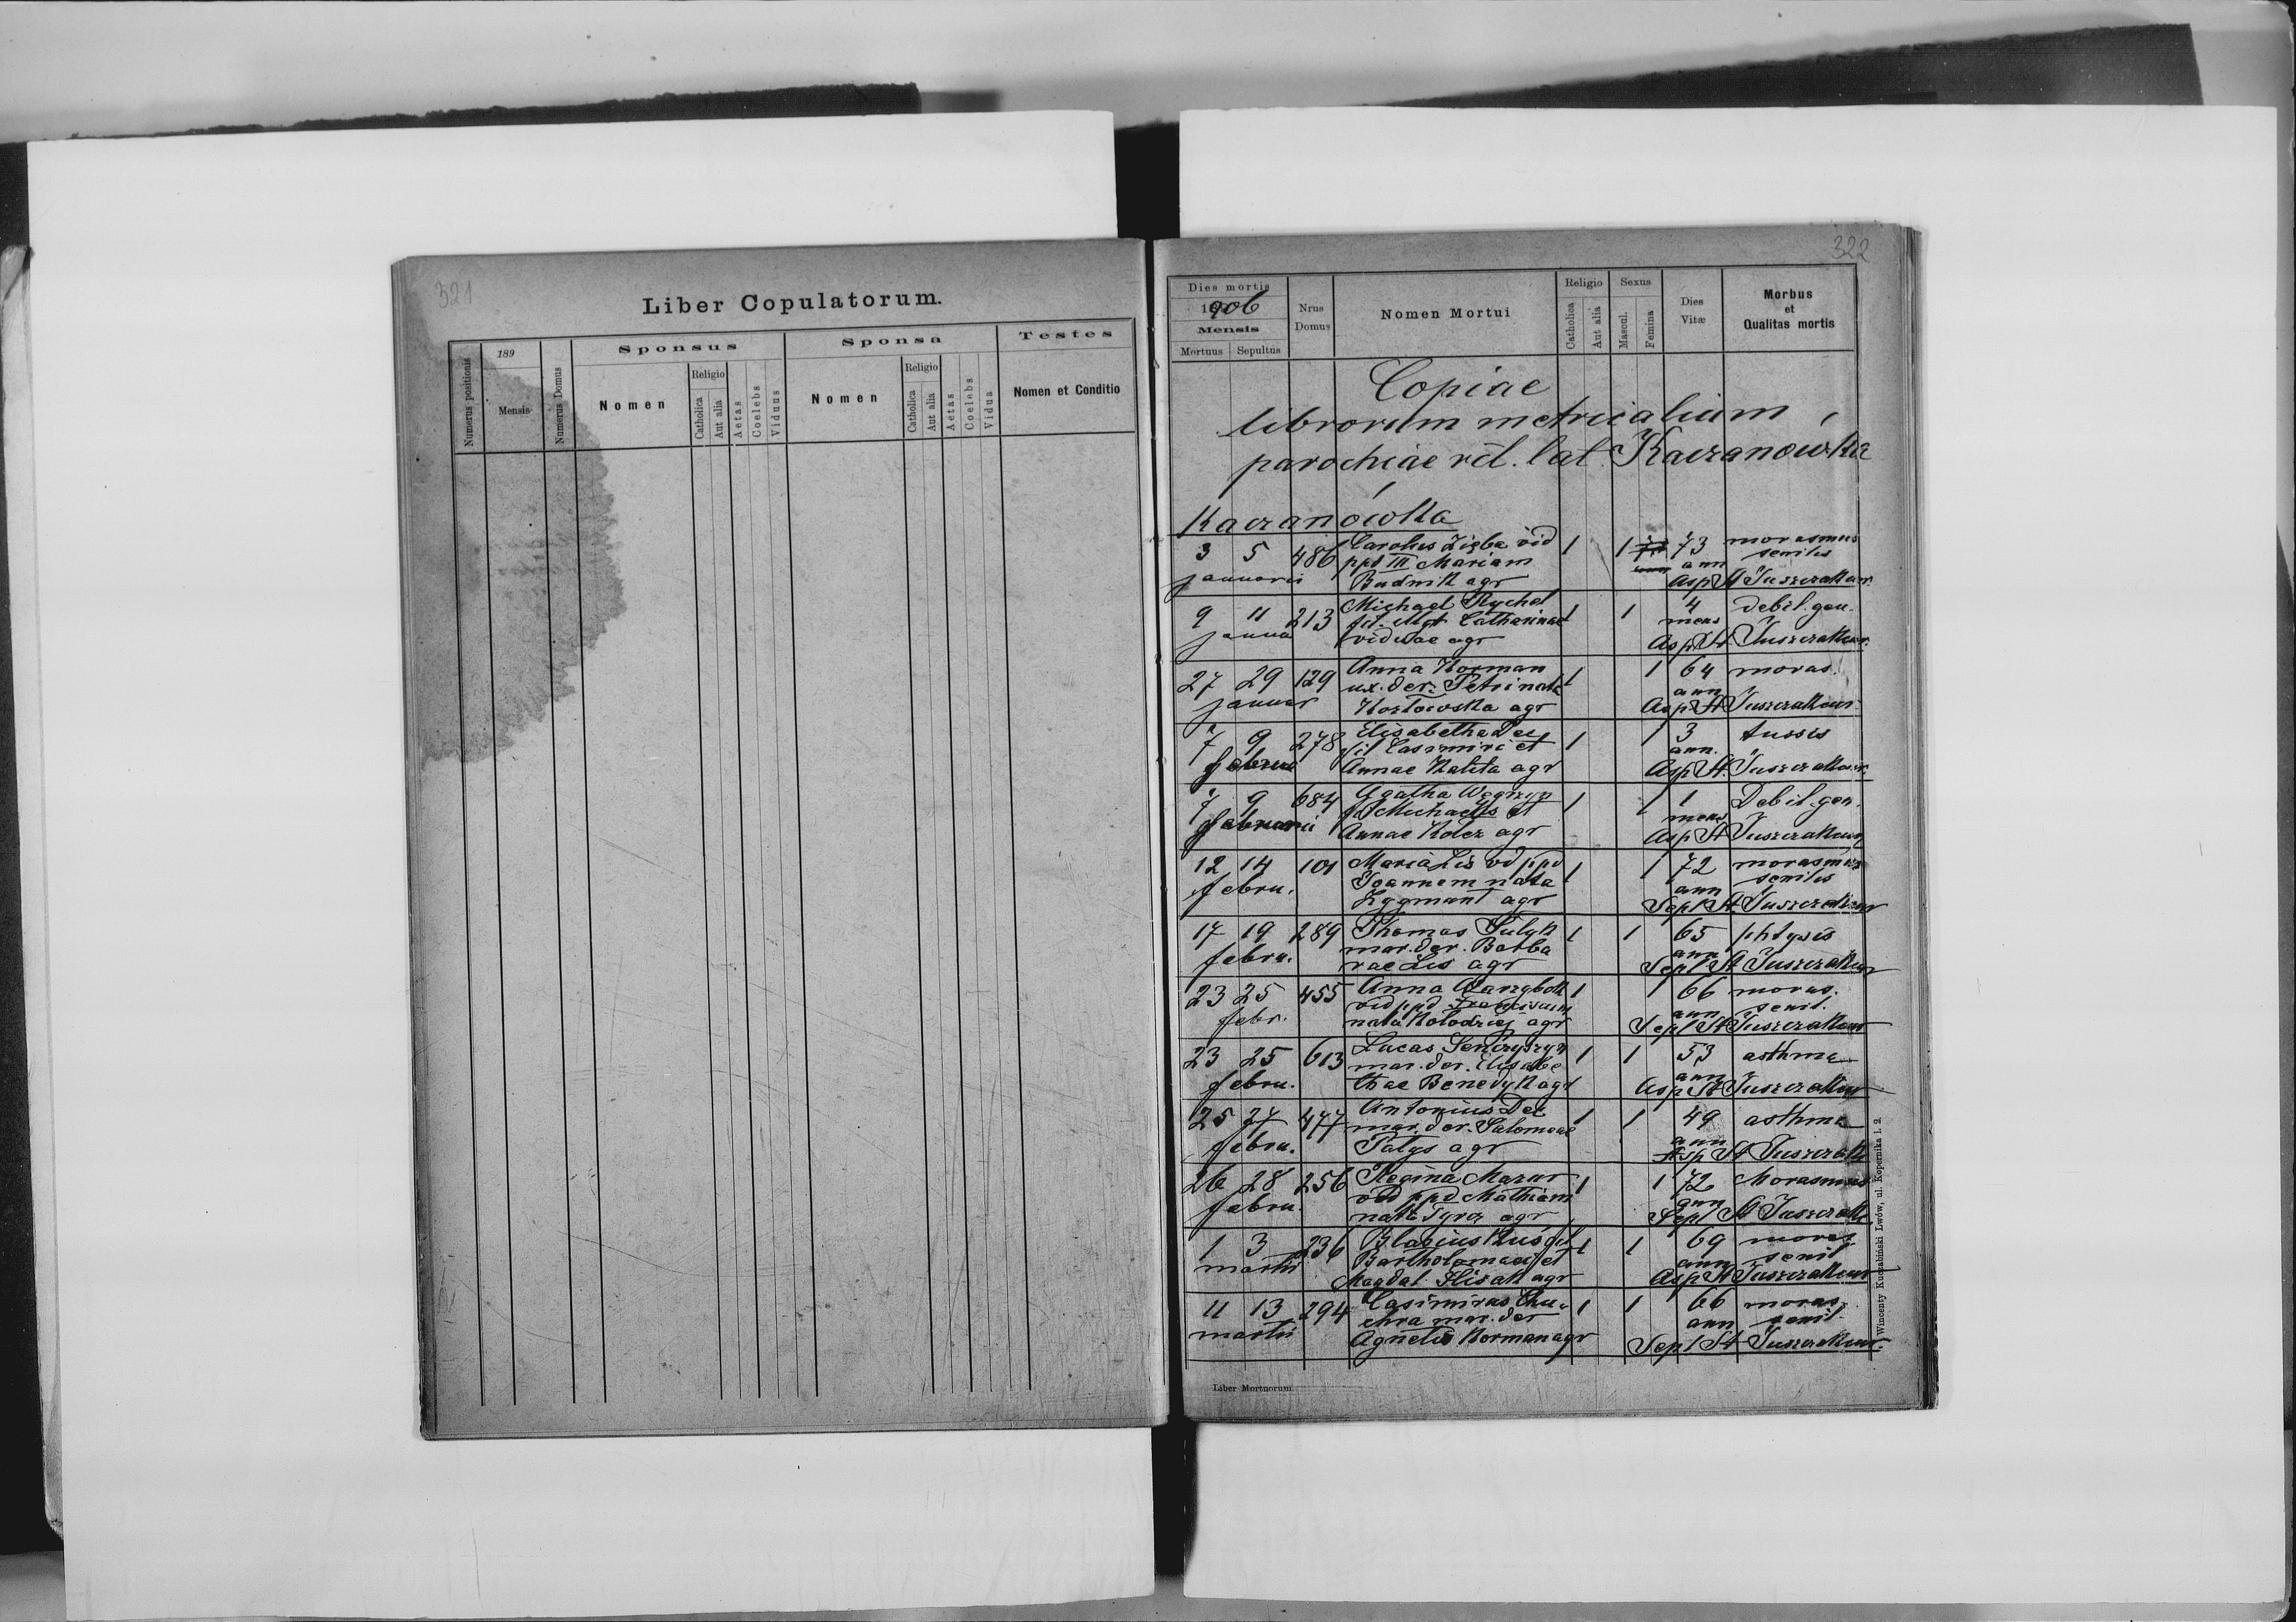 321
Liber Copulatorum.
Numerus positionis
189
Mensis
Numerus Domus
Sponsus
Nomen
Religio
Catholica
Aut alia
Aetas
Coelebs
Viduus
Sponsa
Nomen
Religio
Catholica
Aut alia
Aetas
Coelebs
Vidua
Testes
Nomen et Conditio
322
Dies mortis
1906
Mensis
Mortuus Sepultus
Nrus Domus
Nomen Mortui
Religio
Catholica
Aut alia
Sexus
Mascul.
Femina
Dies Vitæ
Morbus
et
Qualitas mortis
Copiae
librorum metricalium
parochiae rit. lat. Kaczanówka
Kaczanówka
3 5 486 Carolus Zięba vid 1 1 73 morasmus
januarii ppd III Mariam ann senilis
Budnik agr Asp St Juszczak cur.
9 11 213 Michael Rychel 1 1 4 debil. gen.
janua fil. Mgt Catharinae mens
viduae agr Asp St Juszczak cur.
27 29 129 Anna Korman 1 1 64 moras.
januar ux. der. Petri nata ann
Kozłowska agr Asp St Juszczak cur.
7 9 278 Elisabetha Dec 1 1 3 tussis
februa fil Casimiri et ann.
Annae Kaleta agr Asp St. Juszczak cur.
7 9 684 Agatha Węgrzyn 1 1 1 Debil. gen.
februarii f Michaelis et mens
Annae Kolcz agr Asp St Juszczak cur
12 14 101 Maria Lis vd ppd 1 1 72 morasmus
febru. Joannem nata ann senilis
Zygmunt agr Sepl St. Juszczak cur
17 19 289 Thomas Sulyk 1 1 65 phtysis
febru. mar. der. Barba ann
rae Lis agr Sepl St Juszczak cur
23 25 455 Anna 1 1 66 moras.
febr. vid ppd Franciscum ann senil.
nata Kołodziej agr Sepl St Juszczak cur
23 25 613 Lucas Sendryszyn 1 1 53 asthma
febru. mar. der. Elisabe ann
thae Benedyk agr Asp St Juszczak cur
25 27 477 Antonius Dec 1 1 49 asthma
febru. mar. der. Salomeae ann
Patys agr Asp St Juszczak
26 28 256 Regina Mazur 1 1 72 Morasmus
febru. vid ppd Mathiam ann
nata Tyrcz agr Sepl St Juszczak
1 3 236 Blasius Kuś fil 1 1 69 moras
martii Bartholomaei et ann senil
Magdal. Ślisak agr Asp St Juszczak cur
11 13 294 Casimirus Chu- 1 1 66 moras.
martii chra mar. der ann senil.
Agnetis Korman agr Sepl St Juszczak cur.
Liber Mortuorum.
Wincenty Kuczabiński Lwów, ul. Kopernika l. 2.